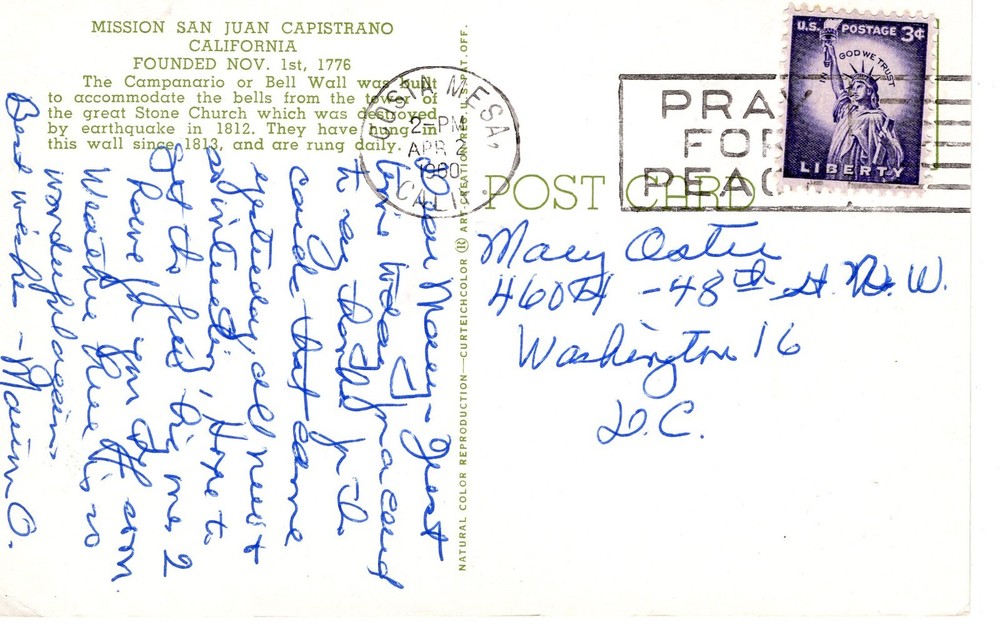 MISSION SAN JUAN CAPISTRANO
CALIFORNIA
FOUNDED NOV. 1st, 1776
The Campanario or Bell Wall was built
to accommodate the bells from the tower of
the great Stone Church which was destroyed
by earthquake in 1812. They have hung in
this wall since 1813, and are rung daily.
Dear Mary - Just
time today
to say thanks for the
card that came
yesterday, all news &
so interesting, Hope to
get to
Have for you
Weather here is so
wonderful again
Best wishes -
NATURAL COLOR REPRODUCTION—CURTEICHCOLOR ® ART-CREATION REG. U.S. PAT. OFF.
COSTA MESA,
2- PM
APR 2
1960
CALIF.
PRAY
FOR
PEACE
U.S. POSTAGE 3¢
IN GOD WE TRUST
LIBERTY
POST CARD
Mary Oster
4604 - 48th St. N.W.
Washington 16
D.C.